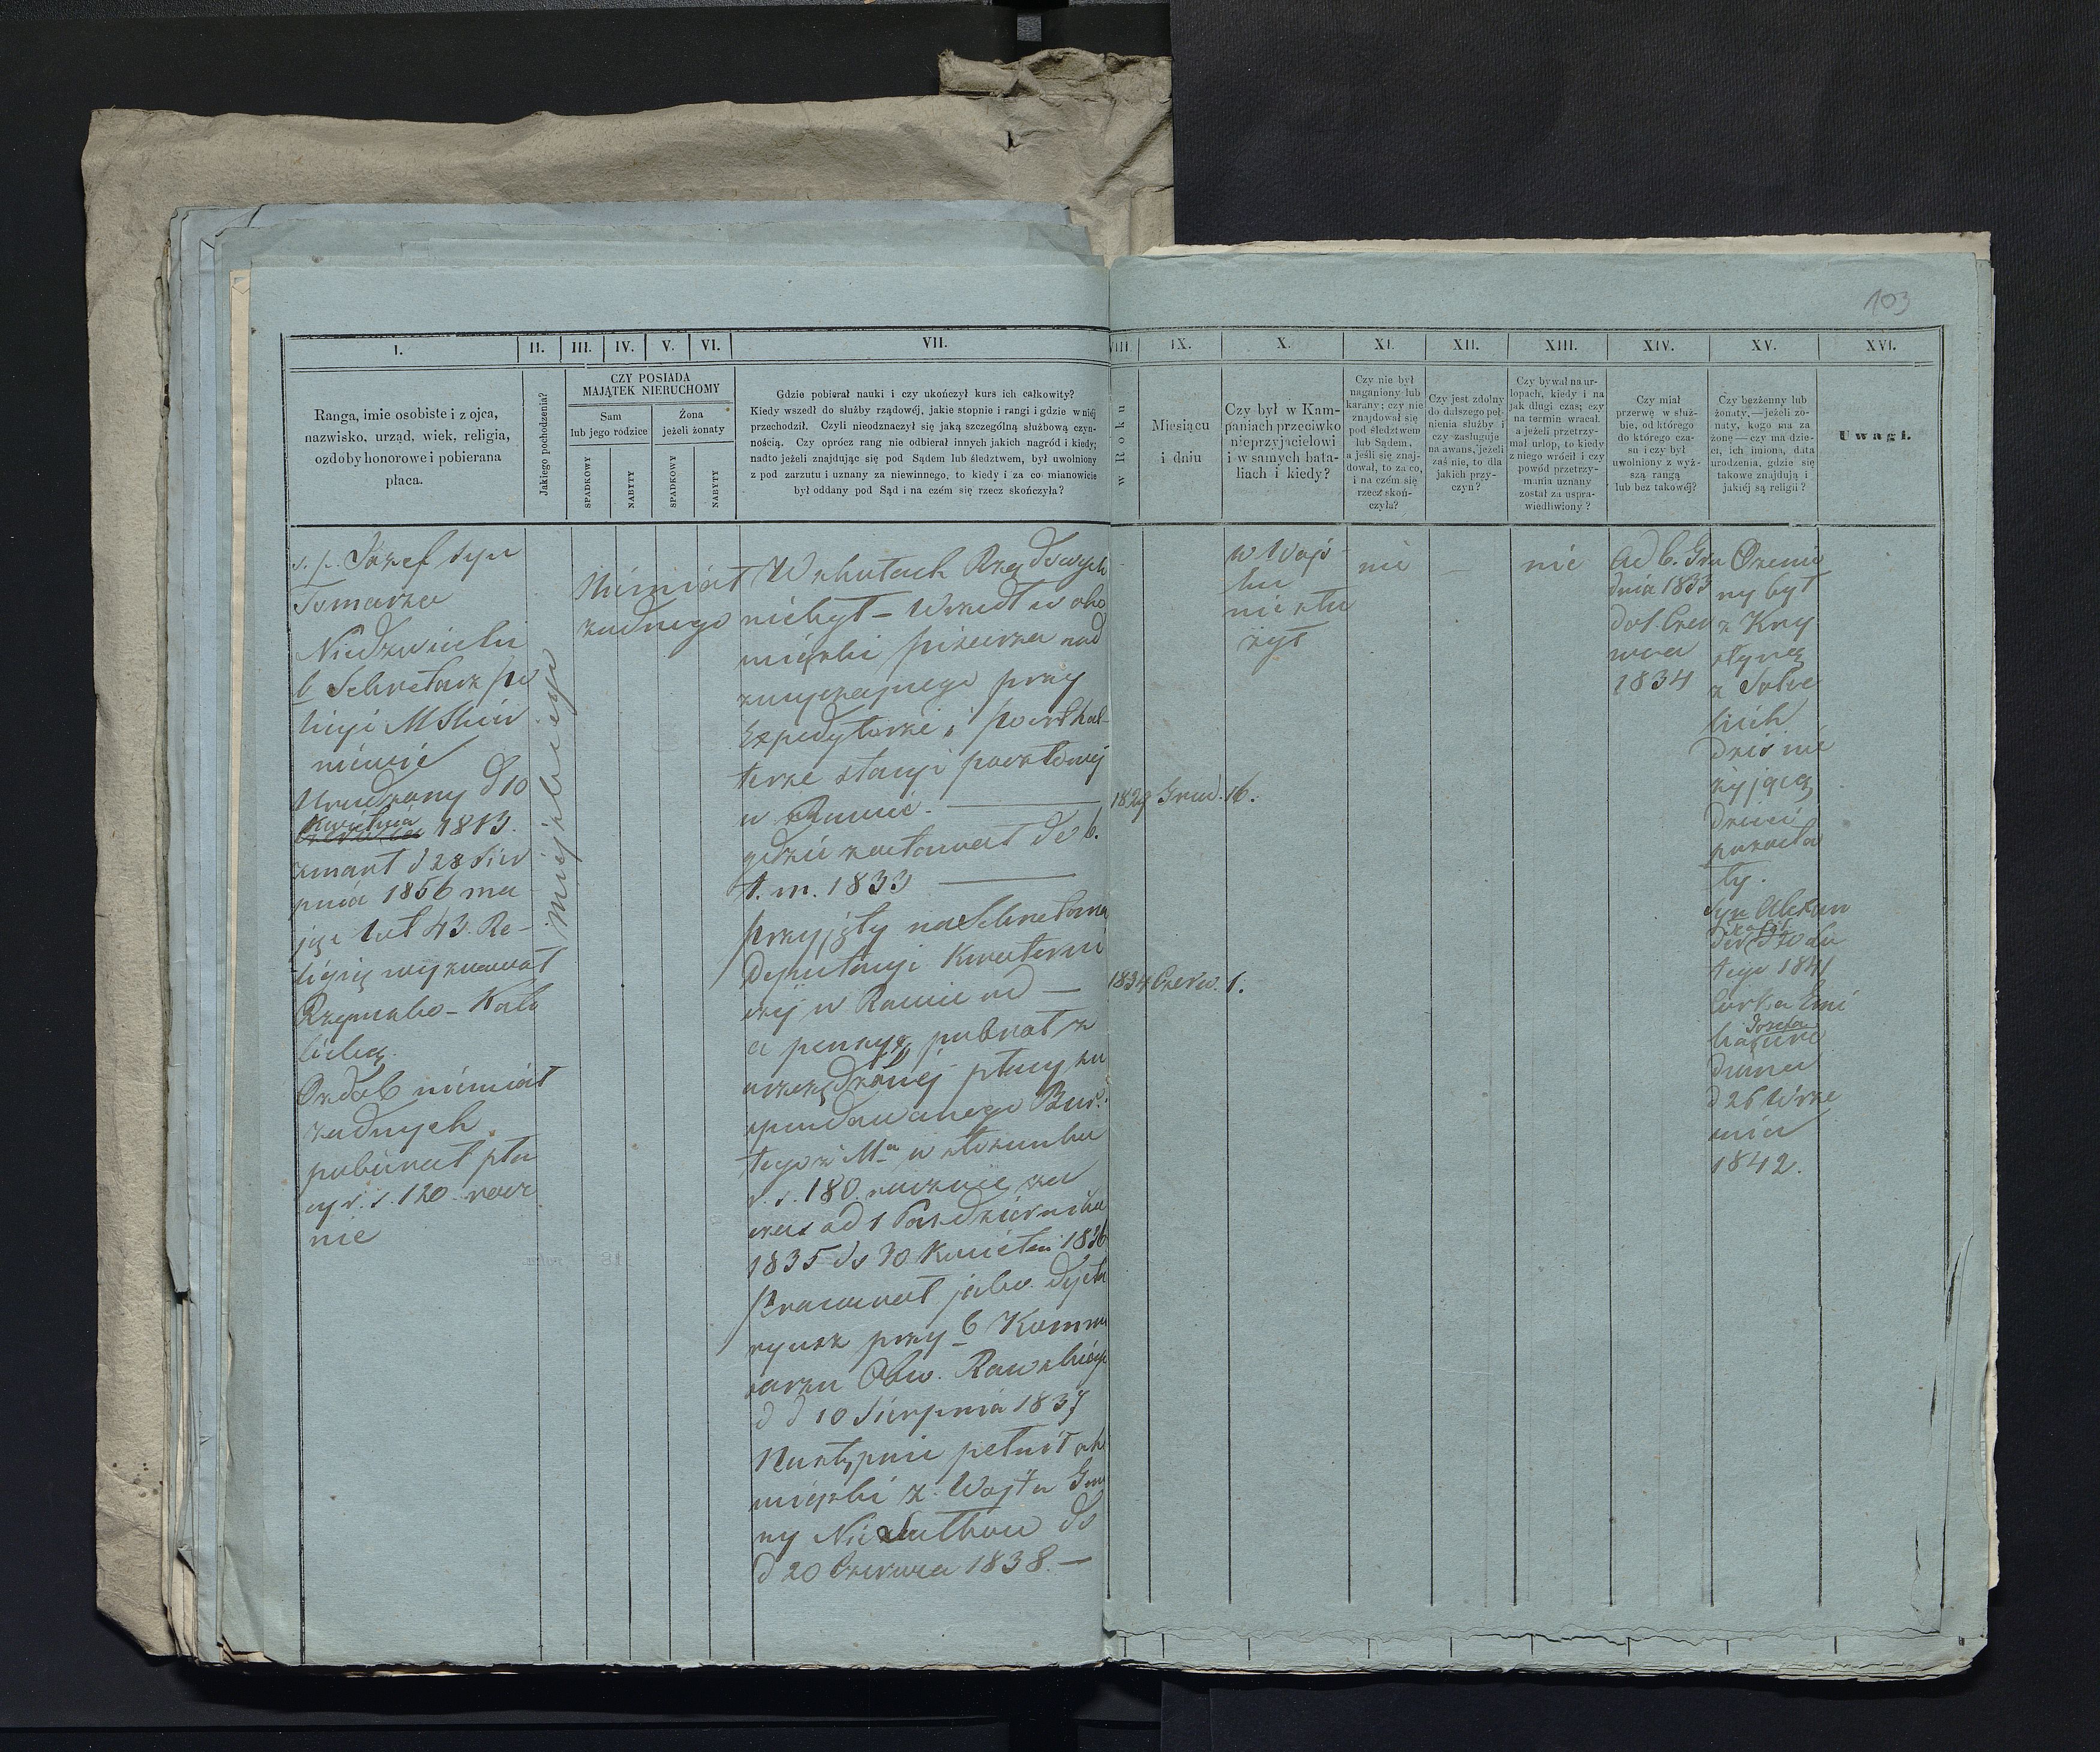 103
I.
II.
III.
IV.
V.
VI.
VII.
VIII.
IX.
X.
XI.
XII.
XIII.
XIV.
XV.
XVI.
Ranga, imie osobiste i z ojca,
nazwisko, urząd, wiek, religia,
ozdoby honorowe i pobierana
płaca.
Jakiego pochodzenia?
CZY POSIADA
MAJĄTEK NIERUCHOMY
Sam
lub jego rodzice
Żona
jeżeli żonaty
SPADKOWY
NABYTY
SPADKOWY
NABYTY
Gdzie pobierał nauki i czy ukończył kurs ich całkowity?
Kiedy wszedł do służby rządowéj, jakie stopnie i rangi i gdzie w niéj
przechodził. Czyli nieodznaczył się jaką szczególną służbową czyn-
nością. Czy oprócz rang nie odbierał innych jakich nagród i kiedy;
nadto jeżeli znajdując się pod Sądem lub śledztwem, był uwolniony
z pod zarzutu i uznany za niewinnego, to kiedy i za co mianowicie
był oddany pod Sąd i na czém się rzecz skończyła?
w Roku
Miesiącu
i dniu
Czy był w Kam-
paniach przeciwko
nieprzyjacielowi
i w samych bata-
liach i kiedy?
Czy nie był
naganiony lub
karany; czy nie
znajdował się
pod śledztwem
lub Sądem,
a jeśli się znaj-
dował, to za co,
i na czém się
rzecz skoń-
czyła?
Czy jest zdolny
do dalszego peł-
nienia służby i
czy zasługuje
na awans, jeżeli
zaś nie, to dla
jakich przy-
czyn?
Czy bywał na ur-
lopach, kiedy i na
jak długi czas; czy
na termin wracał
a jeżeli przetrzy-
mał urlop, to kiedy
z niego wrócił i czy
powód przetrzy-
mania uznany
został za uspra-
wiedliwiony?
Czy miał
przerwę w służ-
bie, od którego
do którego cza-
su i czy był
uwolniony z wyż-
szą rangą
lub bez takowéj?
Czy bezżenny lub
żonaty,—jeżeli żo-
naty, kogo ma za
żonę—czy ma dzie-
ci, ich imiona, data
urodzenia, gdzie się
takowe znajdują i
jakiéj są religii?
Uwagi.
ś. p. Józef syn
Tomasza
Niedzwiecki
b Sekretarz po
licyi M Skier
niewic
Urodzony d 10
Kwietnia 1813.
zmarł d 28 Sier
pnia 1856 ma
jąc lat 43. Re-
ligię wyznawał
Rzymsko-Kato
licką.
Ozdób niemiał
żadnych
pobierał pła
cy r. s. 120 rocz
nie
Miejskiego
Niemiał
żadnego
W szkołach Rządowych
niebył - Wszedł w obo
wiązki pisarza nad
zwyczajnego przy
Expedytorze i poczthal-
terze stacyi pocztowej
w Rawie.
gdzie zostawał do 6.
t. m. 1833
przyjęty na Sekretarza
Deputacyi Kwaterni
czej w Rawie od
a pensyę pobierał z
oszczędzonej płacy za
wendowanego Bur.
tegoż Ma w stosunku
r. s. 180 rocznie za
czas od 1 Października
1835 do 30 Kwietni 1836
Pracował jako dyeta
ryusz przy b Kommis
sarzu Obw. Rawskiego
d d 10 Sierpnia 1837
Następnie pełnił obo
wiązki z. Wójta Gmi
ny do
d 20 Czerwca 1838.
1829 Grud. 16.
1834 Czerw. 1.
w Woj
sku
nie słu
żył
nie
—
nie
Od 6. Gru
dnia 1833
do 1. Czer
wca
1834
Ożenio
ny był
z Kry
styną
z Sobo
lich
dziś nie
żyjącą
dzieci
pozosta
ły.
Syn Alexan
der d 20 Lu
tego 1841
Córka Emi
lia Józefa
d 26 Wrze
śnia
1842.